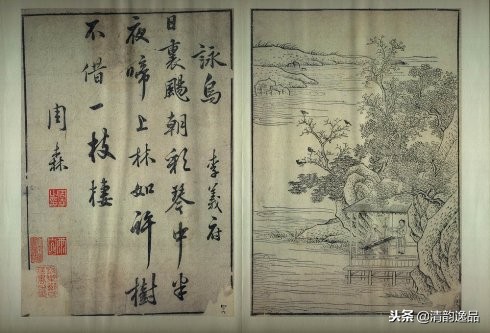 詠烏 李義府
日裏颺朝彩琴中半
夜啼上林如許樹
不借一枝棲
周森
头条 @清韵逸品